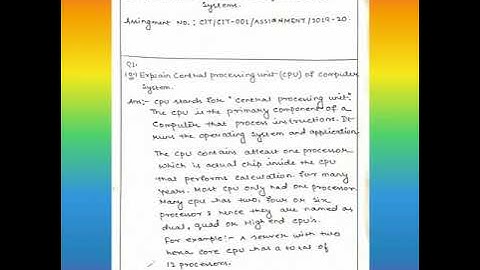 Systems.
Assingment No.: CIT/CIT-001/ASSIGNMENT/2019-20.
Q1.
Explain Central processing unit (CPU) of computer
System.
Ans:- CPU stands for "central processing unit".
The CPU is the primary component of a
Computer that process instructions. It
runs the operating system and application
The CPU contains atleast one processor
which is actual chip inside the CPU
that performs calculation for many
years. Most CPU only had one processor
Many CPU has two, four or six
processor's hence they are named as
dual, quad or High end CPU's.
For example:- A server with two
hexa core CPU has a total of
12 processors.